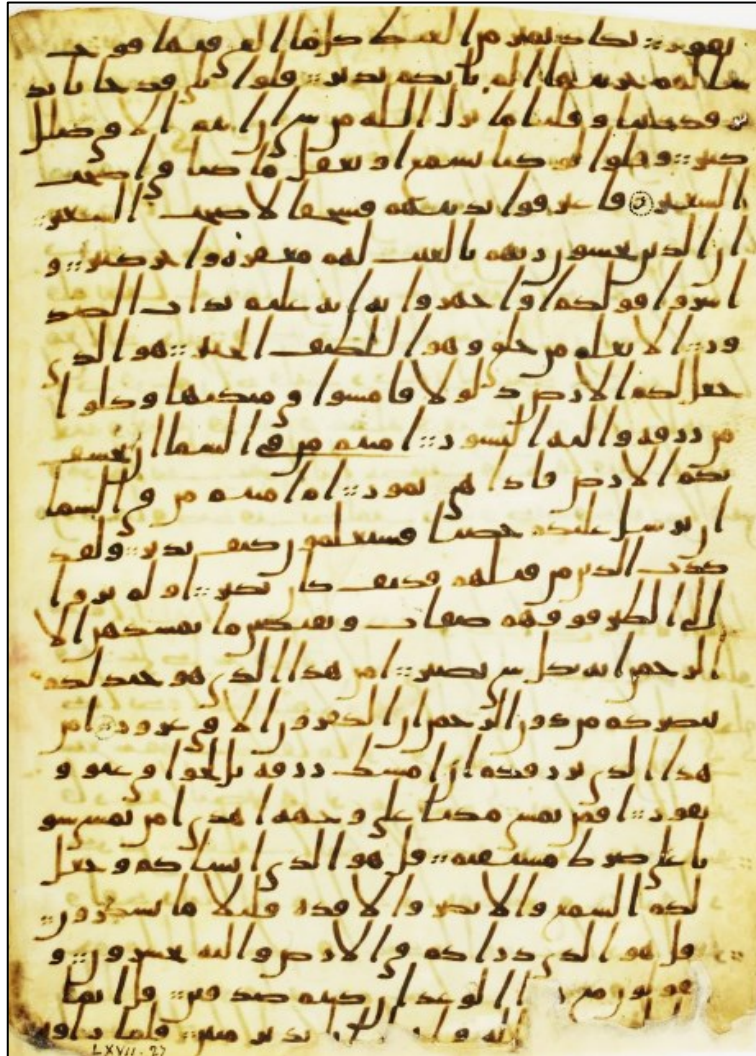 تفور :: تكاد تميز من الغيظ كلما القي فيها فوج
سالهم خزنتها الم ياتكم نذير :: قلوا بلى قد جانا نذ
ير فكذبنا وقلنا ما نزل الله من شي ان انتم الا في ضلل
كبير :: وقلوا لو كنا نسمع او نعقل ما كنا في اصحب
السعير فاعترفوا بذنبهم فسحقا لاصحب السعير ::
ان الذين يخشون ربهم بالغيب لهم مغفرة واجر كبير :: و
اسروا قولكم او اجهروا به انه عليم بذات الصد
ور :: الا يعلم من خلق وهو اللطيف الخبير :: هو الذي
جعل لكم الارض ذلولا فامشوا في منكبها وكلوا
من رزقه واليه النشور :: امنتم من في السما ان يخسف
بكم الارض فاذا هي تمور :: ام امنتم من في السما
ان يرسل عليكم حصبا فستعلمون كيف نذير :: ولقد
كذب الذين من قبلهم فكيف كان نكير :: اولم يروا
الى الطير فوقهم صفات ويقبضن ما يمسكهن الا
الرحمن انه بكل شي بصير :: امن هذا الذي هو جند لكم
ينصركم من دون الرحمن ان الكفرون الا في غرور امن
هذا الذي يرزقكم ان امسك رزقه بل لجوا في عتو و
نفور :: افمن يمشي مكبا على وجهه اهدى امن يمشي سو
يا على صرط مستقيم :: قل هو الذي انشاكم وجعل
لكم السمع والابصر والافدة قليلا ما تشكرون ::
قل هو الذي ذراكم في الارض واليه تحشرون :: و
يقولون متى الوعد ان كنتم صدقين :: قل انما
الله نذير مبين :: فلما راوه
LXVII. 27